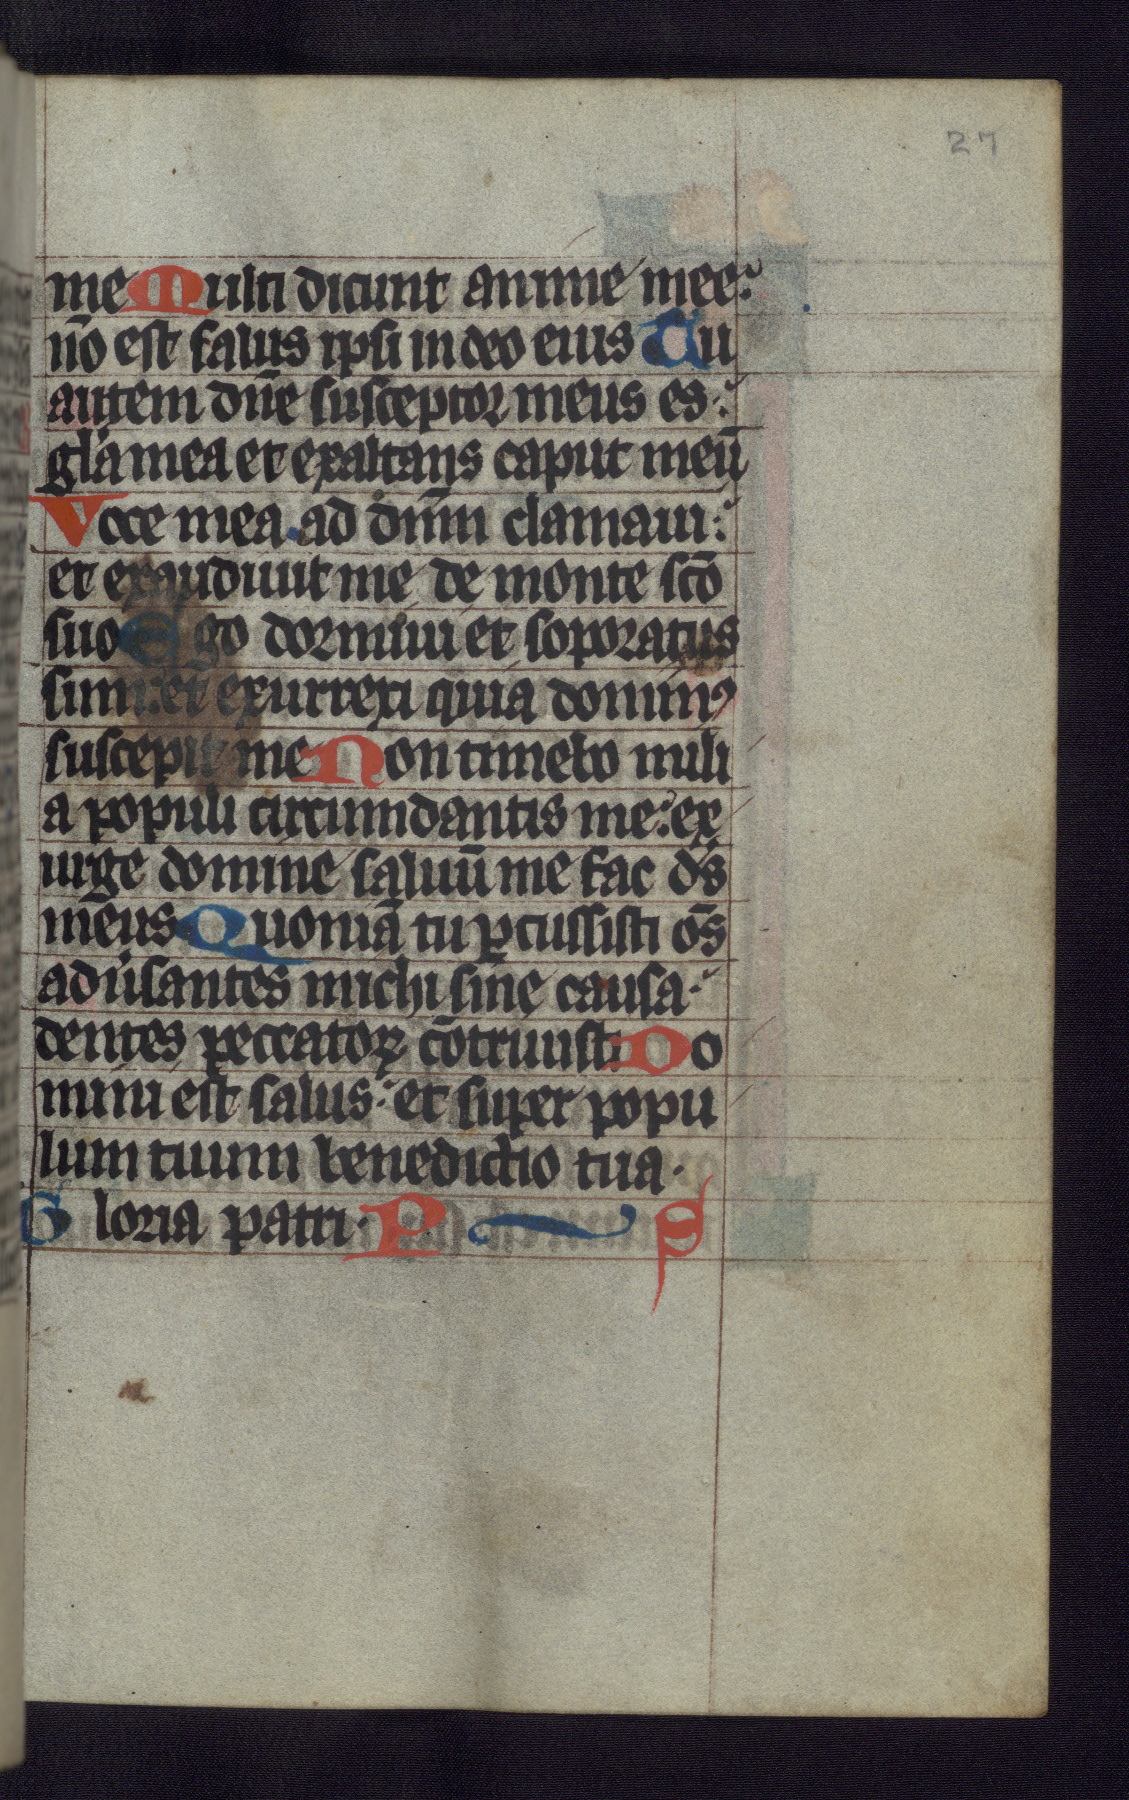 27
me Multi dicunt anime mee:
nō est salus ipsi in deo eius Tu
autem dn̄e susceptor meus es:
gl̄a mea et exaltans caput meū
Voce mea ad dn̄m clamaui:
et exaudiuit me de monte scō
suo Ego dormiui et soporatus
sum: et exurrexi quia dominꝰ
suscepit me Non timebo mili
a populi circumdantis me: ex
urge domine saluū me fac ds̄
meus Quoniā tu ꝑcussisti om̄s
adu̓santes michi sine causa
dentes peccatoꝝ cōtriuisti Do
mini est salus: et super popu
lum tuum benedictio tua.
Gloria patri. P S